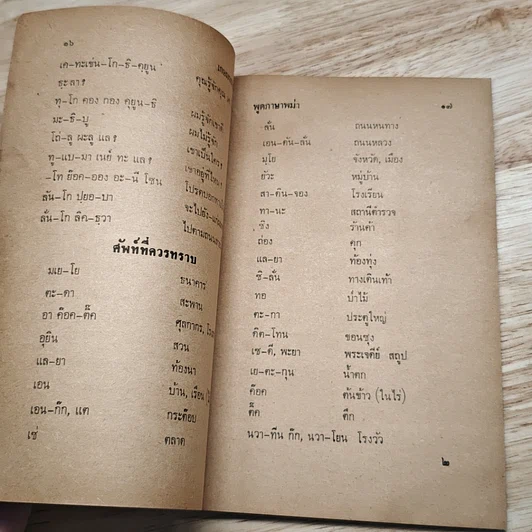 ๑๖
เค-ทะเซ่น-โก-ธิ-คุยูน
ธะลา
ทุ-โก คอง กอง คุยูน-ธิ
ผมรู้จักเขาดี
มะ-ธิ-บู
ผมไม่รู้จัก
โถ-ลู ผะลู แล
เขาเป็นใคร
ทู-แบ-มา เนย์ ทะ แล
เขาอยู่ที่ไหน
-โท ย๊อค-ออง อะ-นี โซน
ลั่น-โก ปุยอ-บา
ลั่น-โก ลิค-ธวา
ศัพท์ที่ควรทราบ
มเย-โย ธนาคาร
ตะ-ดา สะพาน
อา ค๊อค-ตั๊ค ศุลกากร,
อุยิน สวน
แล-ยา ท้องนา
เอน บ้าน, เรือน
เอน-กิ๊ก, แต กระต๊อบ
เซ่ ตลาด
พูดภาษาพม่า ๑๗
-ลั่น ถนนหนทาง
เอน-ดัน-ลั่น ถนนหลวง
มุโย จังหวัด, เมือง
ยัวะ หมู่บ้าน
สา-ดัน-จอง โรงเรียน
ทา-นะ สถานีตำรวจ
ซิง ร้านค้า
ถ่อง คุก
แล-ยา ท้องทุ่ง
ซิ-ลั่น ทางเดินเท้า
ทอ ป่าไม้
ตะ-กา ประตูใหญ่
ติด-โทน ขอนซุง
เซ-ดี, พะยา พระเจดีย์ สถูป
เย-ตะ-กุน น้ำตก
ค๊อค ต้นข้าว (ในไร่)
ตั๊ค ตึก
นวา-ทีน กิ๊ก, นวา-โยน โรงวัว
๒